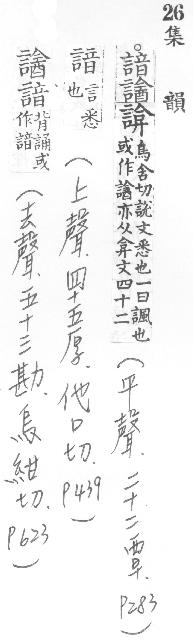 26集韻
。諳譮䛳烏含切說文悉也一曰諷也或作譮亦从弇文四十二(平聲.二十二覃.P283)
諳言悉也(上聲.四十五厚.他口切.P439)
譮諳背誦或作諳(去聲.五十三勘.烏紺切.P623)